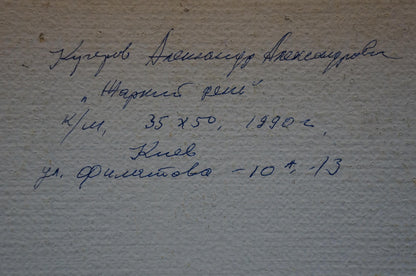 Кучеров Александр Александрович
„Жаркий день"
к/м, 35 х 50, 1990 г.,
Киев
ул. Филатова - 10 А, - 13